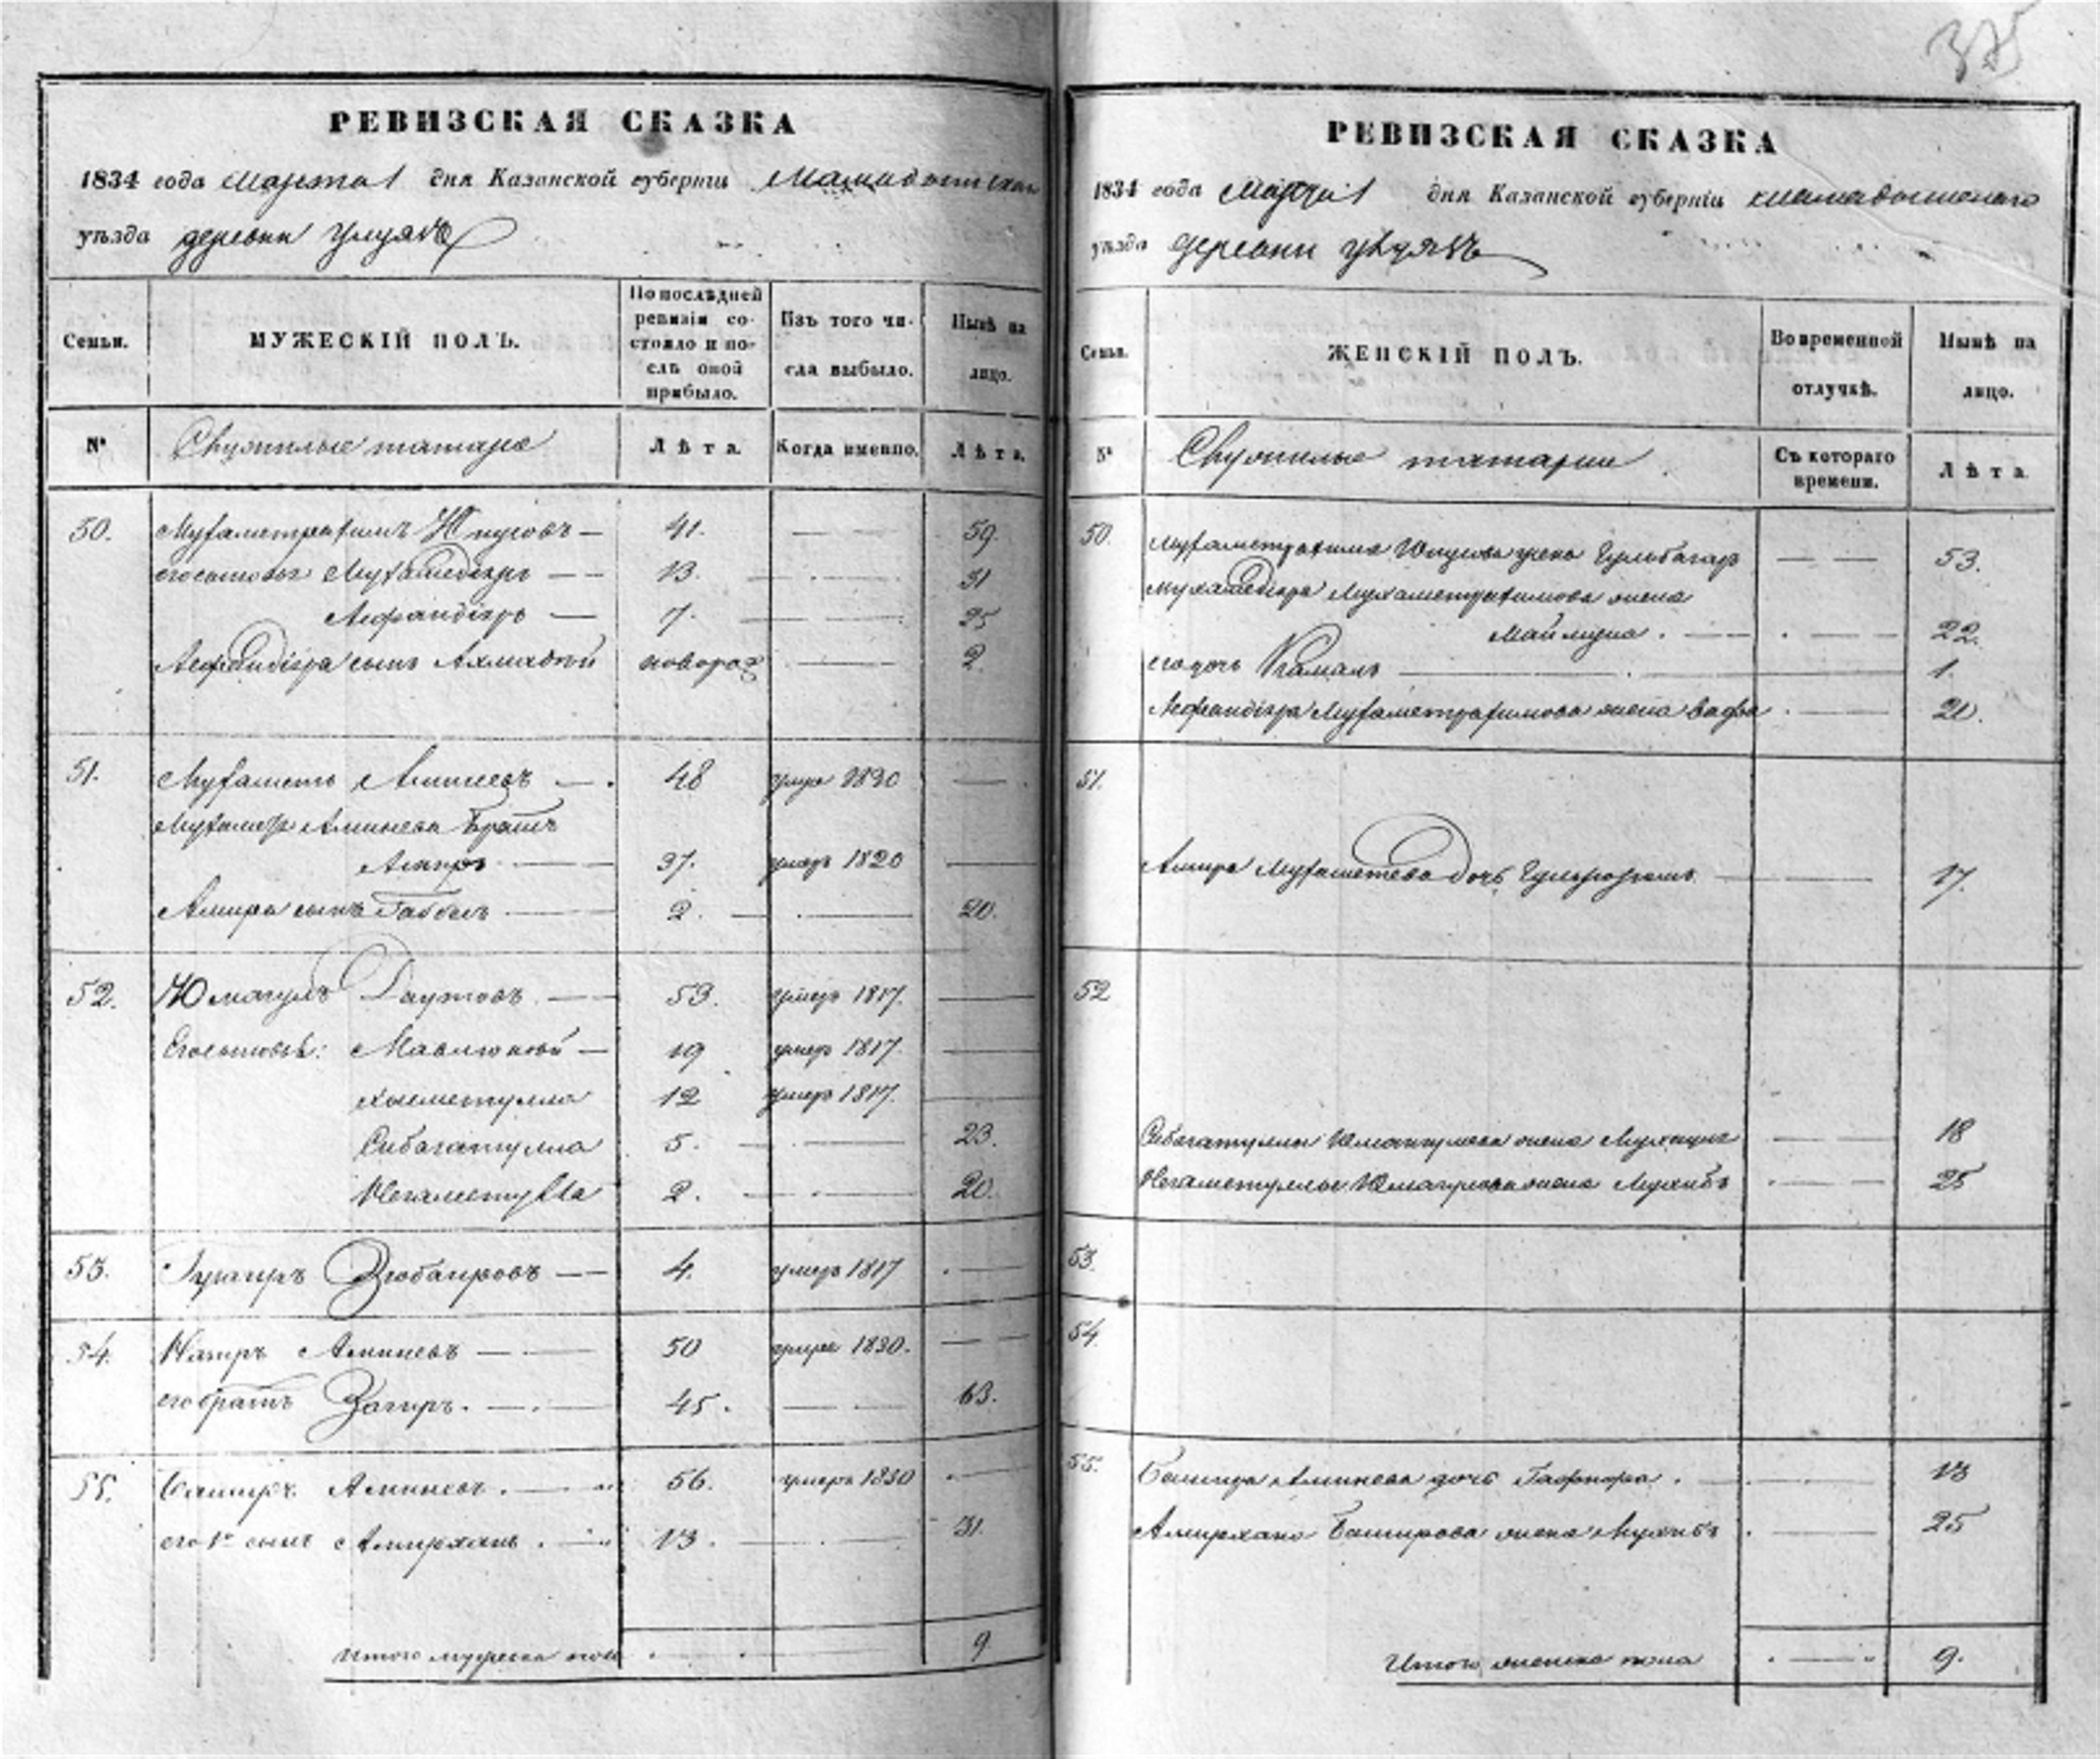 375
РЕВИЗСКАЯ СКАЗКА
1834 года марта 1 дня Казанской губерніи Мамадышскаго
уѣзда деревни
Семьи.
МУЖЕСКІЙ ПОЛЪ.
По послѣдней ревизіи состояло и послѣ оной прибыло.
Изъ того числа выбыло.
Нынѣ на лицо.
№
Служилые татара
Лѣта.
Когда именно.
Лѣта.
50. Мухаметрахимъ Юнусовъ — 41. — — 59.
его сыновья Мухамедіяръ — — 13. — — 31
Асфандіяръ — 7. — — 25
Асфандіяра сынъ новорож — — 2.
51. Мухаметь Аминевъ — 48 умре 1830 —
Мухамета Аминева братъ
Амиръ — 37. умеръ 1820 —
Амира сынъ — 2. — — 20.
52. Юмагулъ Даутовъ — 53. умеръ 1817. —
Его сыновья: — 19 умеръ 1817. —
Хисметулла 12 умеръ 1817. —
Сибагатулла 5. — — 23.
Негаметулла 2. — — 20.
53. Зюбаировъ — 4. умеръ 1817 —
54. Аминевъ — 50 умре 1830. — —
его братъ Загиръ. — 45. — — 63.
55. Баширъ Аминевъ. — 56. умеръ 1830 —
его 1й сынъ Амирханъ. — 13. — — 31.
Итого мужеска пола 9
РЕВИЗСКАЯ СКАЗКА
1834 года марта 1 дня Казанской губерніи мамадышскаго
уѣзда деревни
Семьи.
ЖЕНСКІЙ ПОЛЪ.
Во временной отлучкѣ.
Нынѣ на лицо.
№
Служилые татарки
Съ котораго времени.
Лѣта.
50. Мухаметрахима Юнусова жена — — 53.
Мухамедіяра Мухаметрахимова жена
Маймуна. — — 22.
его дочь Камалъ — 1.
Асфандіяра Мухаметрахимова жена Вафа — 20.
51.
Амира Мухаметева дочь — — 17.
52
Сибагатуллы Юмагулова жена — 18
Негаметуллы Юмагулова жена Мухибъ — 25
53.
54.
55. Башира Аминева дочь — 13
Амирхана Баширова жена Мухибъ — 25
Итого женска пола — 9.